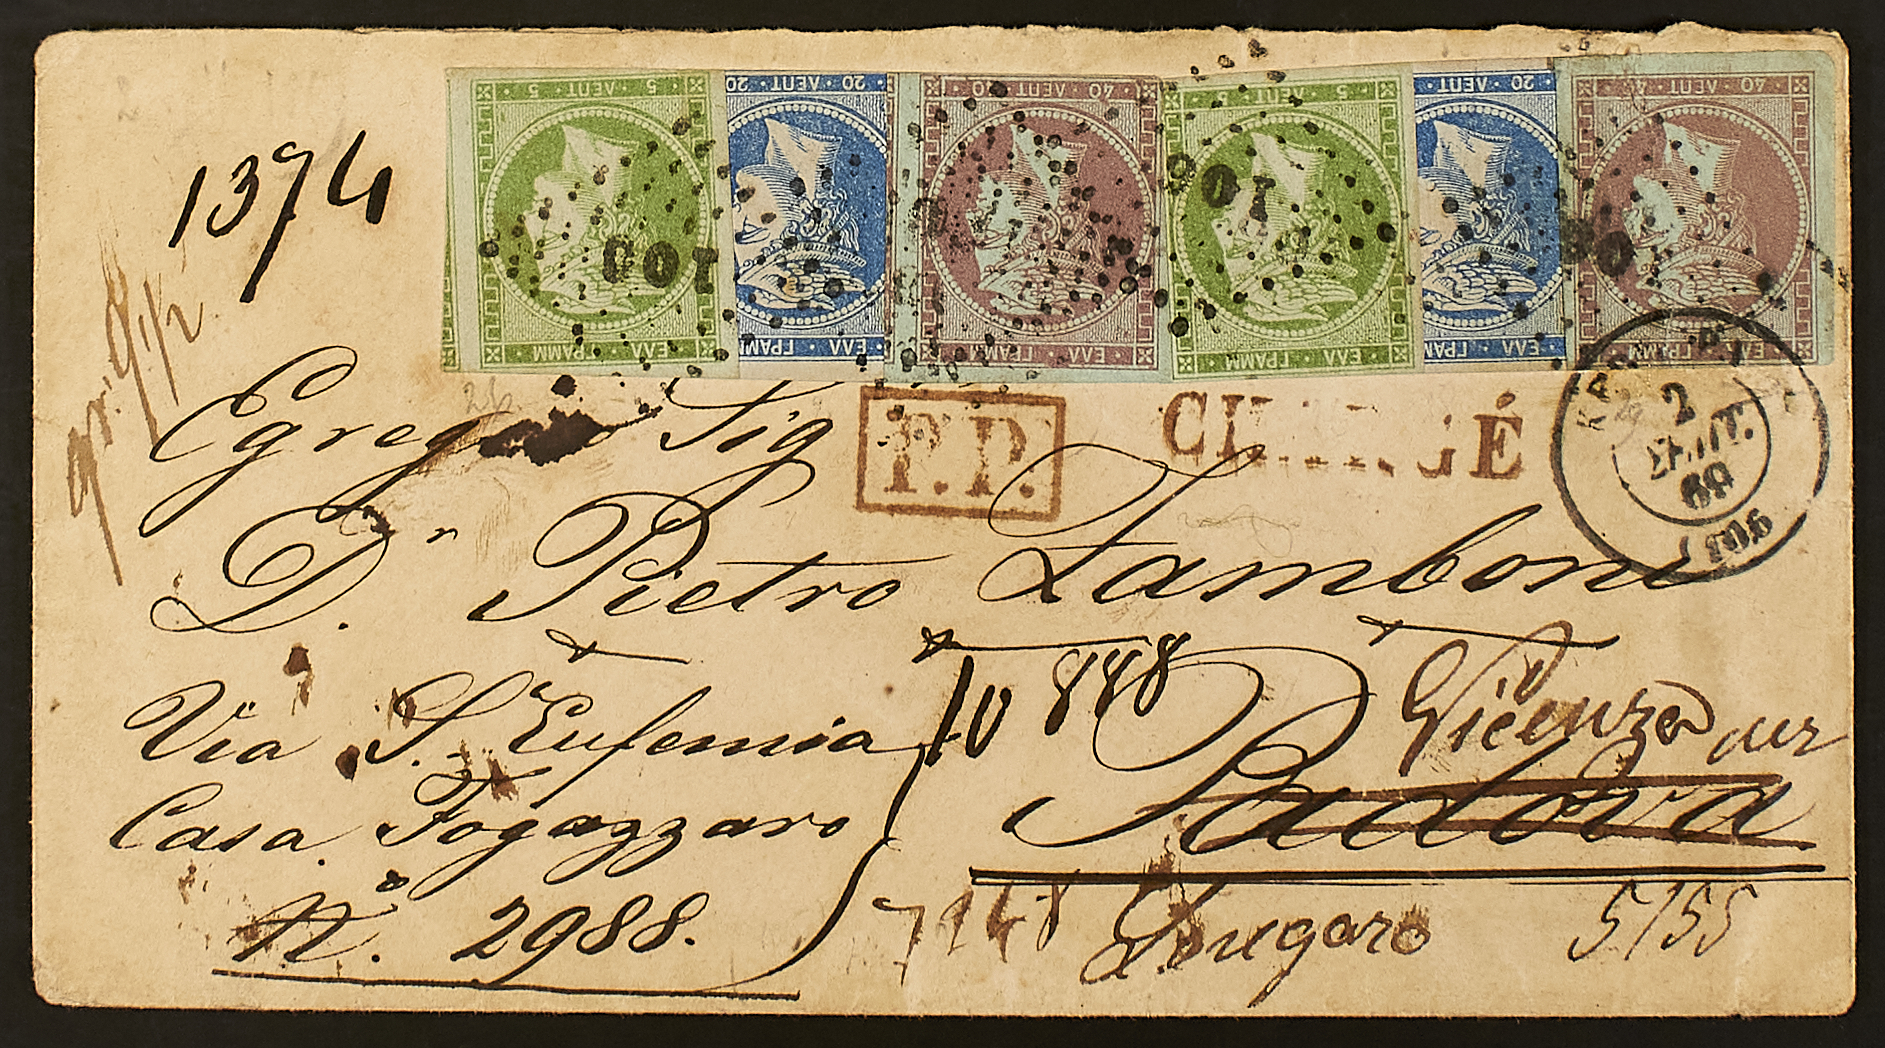 5 · ΛΕΠΤ · 5
20 · ΛΕΠΤ · 20
40 · ΛΕΠΤ · 40
5 · ΛΕΠΤ · 5
20 · ΛΕΠΤ · 20
40 · ΛΕΠΤ · 40
ΕΛΛ · ΓΡΑΜΜ
ΕΛΛ · ΓΡΑΜ
ΕΛΛ · ΓΡΑΜΜ
ΕΛΛ · ΓΡΑΜΜ
ΕΛΛ · ΓΡΑΜ
ΕΛΛ · ΓΡΑΜΜ
100
1374
gr. 9 1/2
P.P.
CHARGÉ
2
ΣΕΠΤ.
69
Egregio Sig
Dr. Pietro Zamboni
10 888
Vicenza per
Via S. Eufemia
Padova
Casa Fogazzaro
N.o 2988.
7148
Longaro
5155